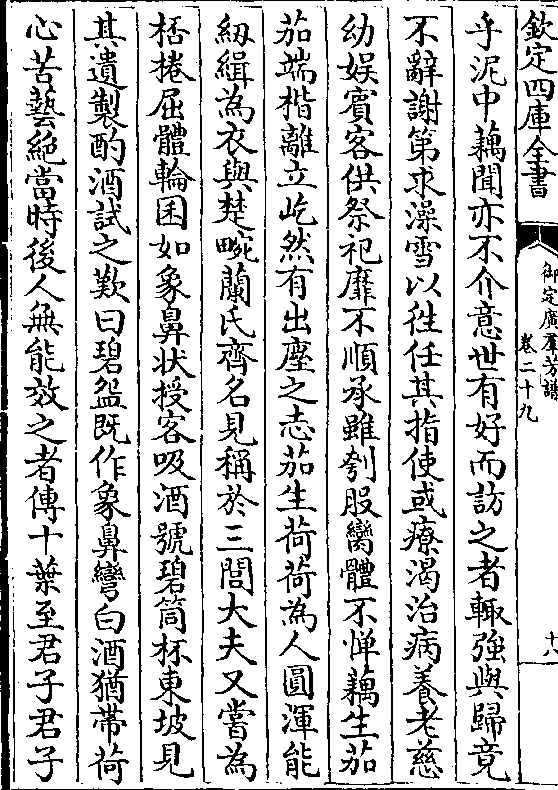 欽定四庫全書
御定廣羣芳譜
卷二十九
十八
乎泥中藕聞亦不介意世有好而訪之者輙強與歸竟
不辭謝第求澡雪以徃任其指使或療渴治病養老慈
幼娱賓客供祭祀靡不順承雖刳股臠體不憚藕生茄
茄端楷離立屹然有出塵之志茄生荷荷為人圓渾能
紉緝為衣與楚畹蘭氏齊名見稱於三閭大夫又嘗為
桮棬屈體輪囷如象鼻狀授客吸酒號碧筒杯東坡見
其遺製酌酒試之歎曰碧盌既作象鼻彎白酒猶帶荷
心苦藝絶當時後人無能效之者傳十葉至君子君子